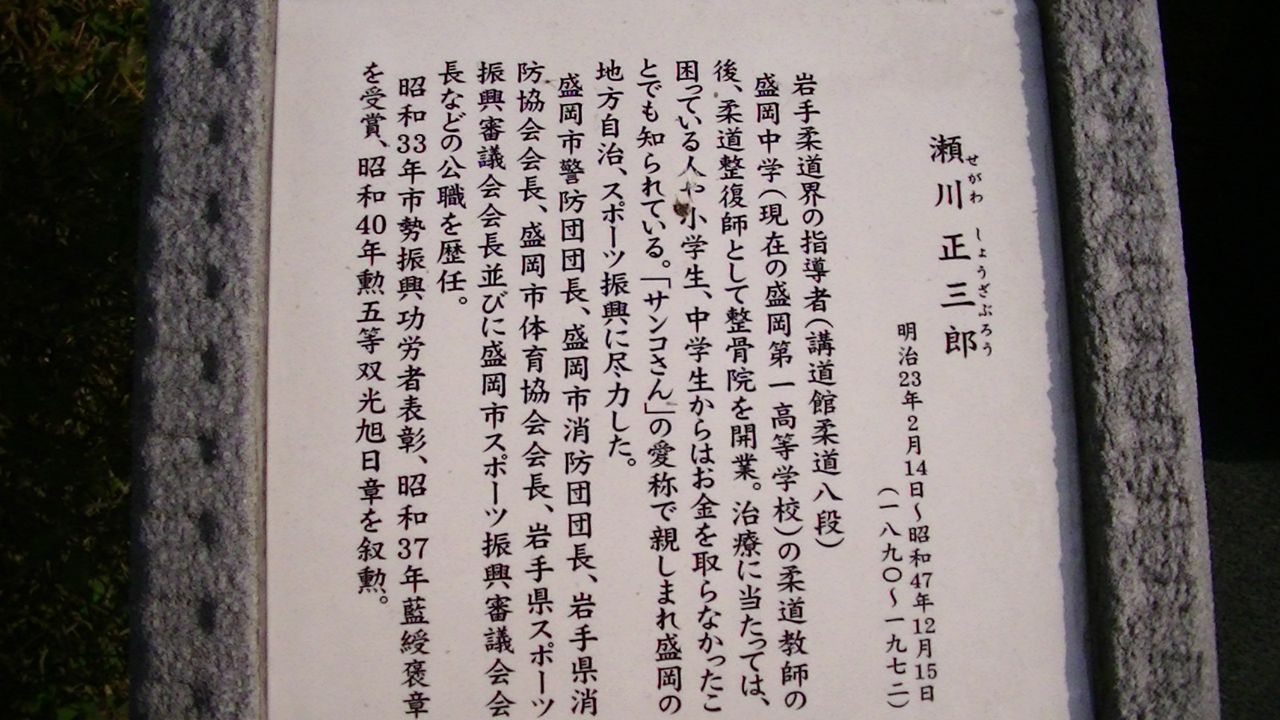 瀬川 正三郎
せがわ しょうざぶろう
明治23年2月14日～昭和47年12月15日
（一八九〇～一九七二）
岩手柔道界の指導者（講道館柔道八段）
盛岡中学（現在の盛岡第一高等学校）の柔道教師の
後、柔道整復師として整骨院を開業。治療に当たっては、
困っている人や小学生、中学生からはお金を取らなかったこ
とでも知られている。「サンコさん」の愛称で親しまれ盛岡の
地方自治、スポーツ振興に尽力した。
盛岡市警防団団長、盛岡市消防団団長、岩手県消
防協会会長、盛岡市体育協会会長、岩手県スポーツ
振興審議会会長並びに盛岡市スポーツ振興審議会会
長などの公職を歴任。
昭和33年市勢振興功労者表彰、昭和37年藍綬褒章
を受賞、昭和40年勲五等双光旭日章を叙勲。